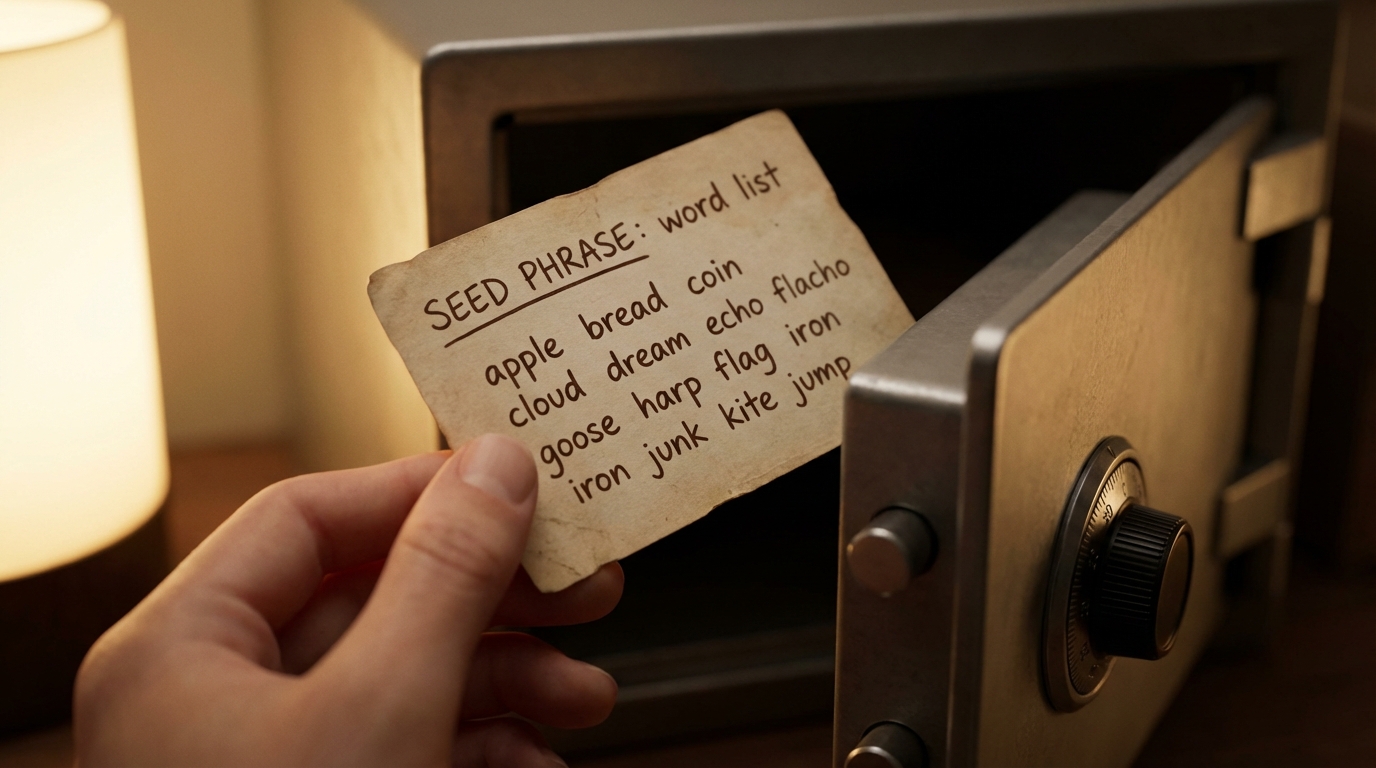 SEED PHRASE: word list
apple bread coin
cloud dream echo flacho
goose harp flag iron
iron junk kite jump